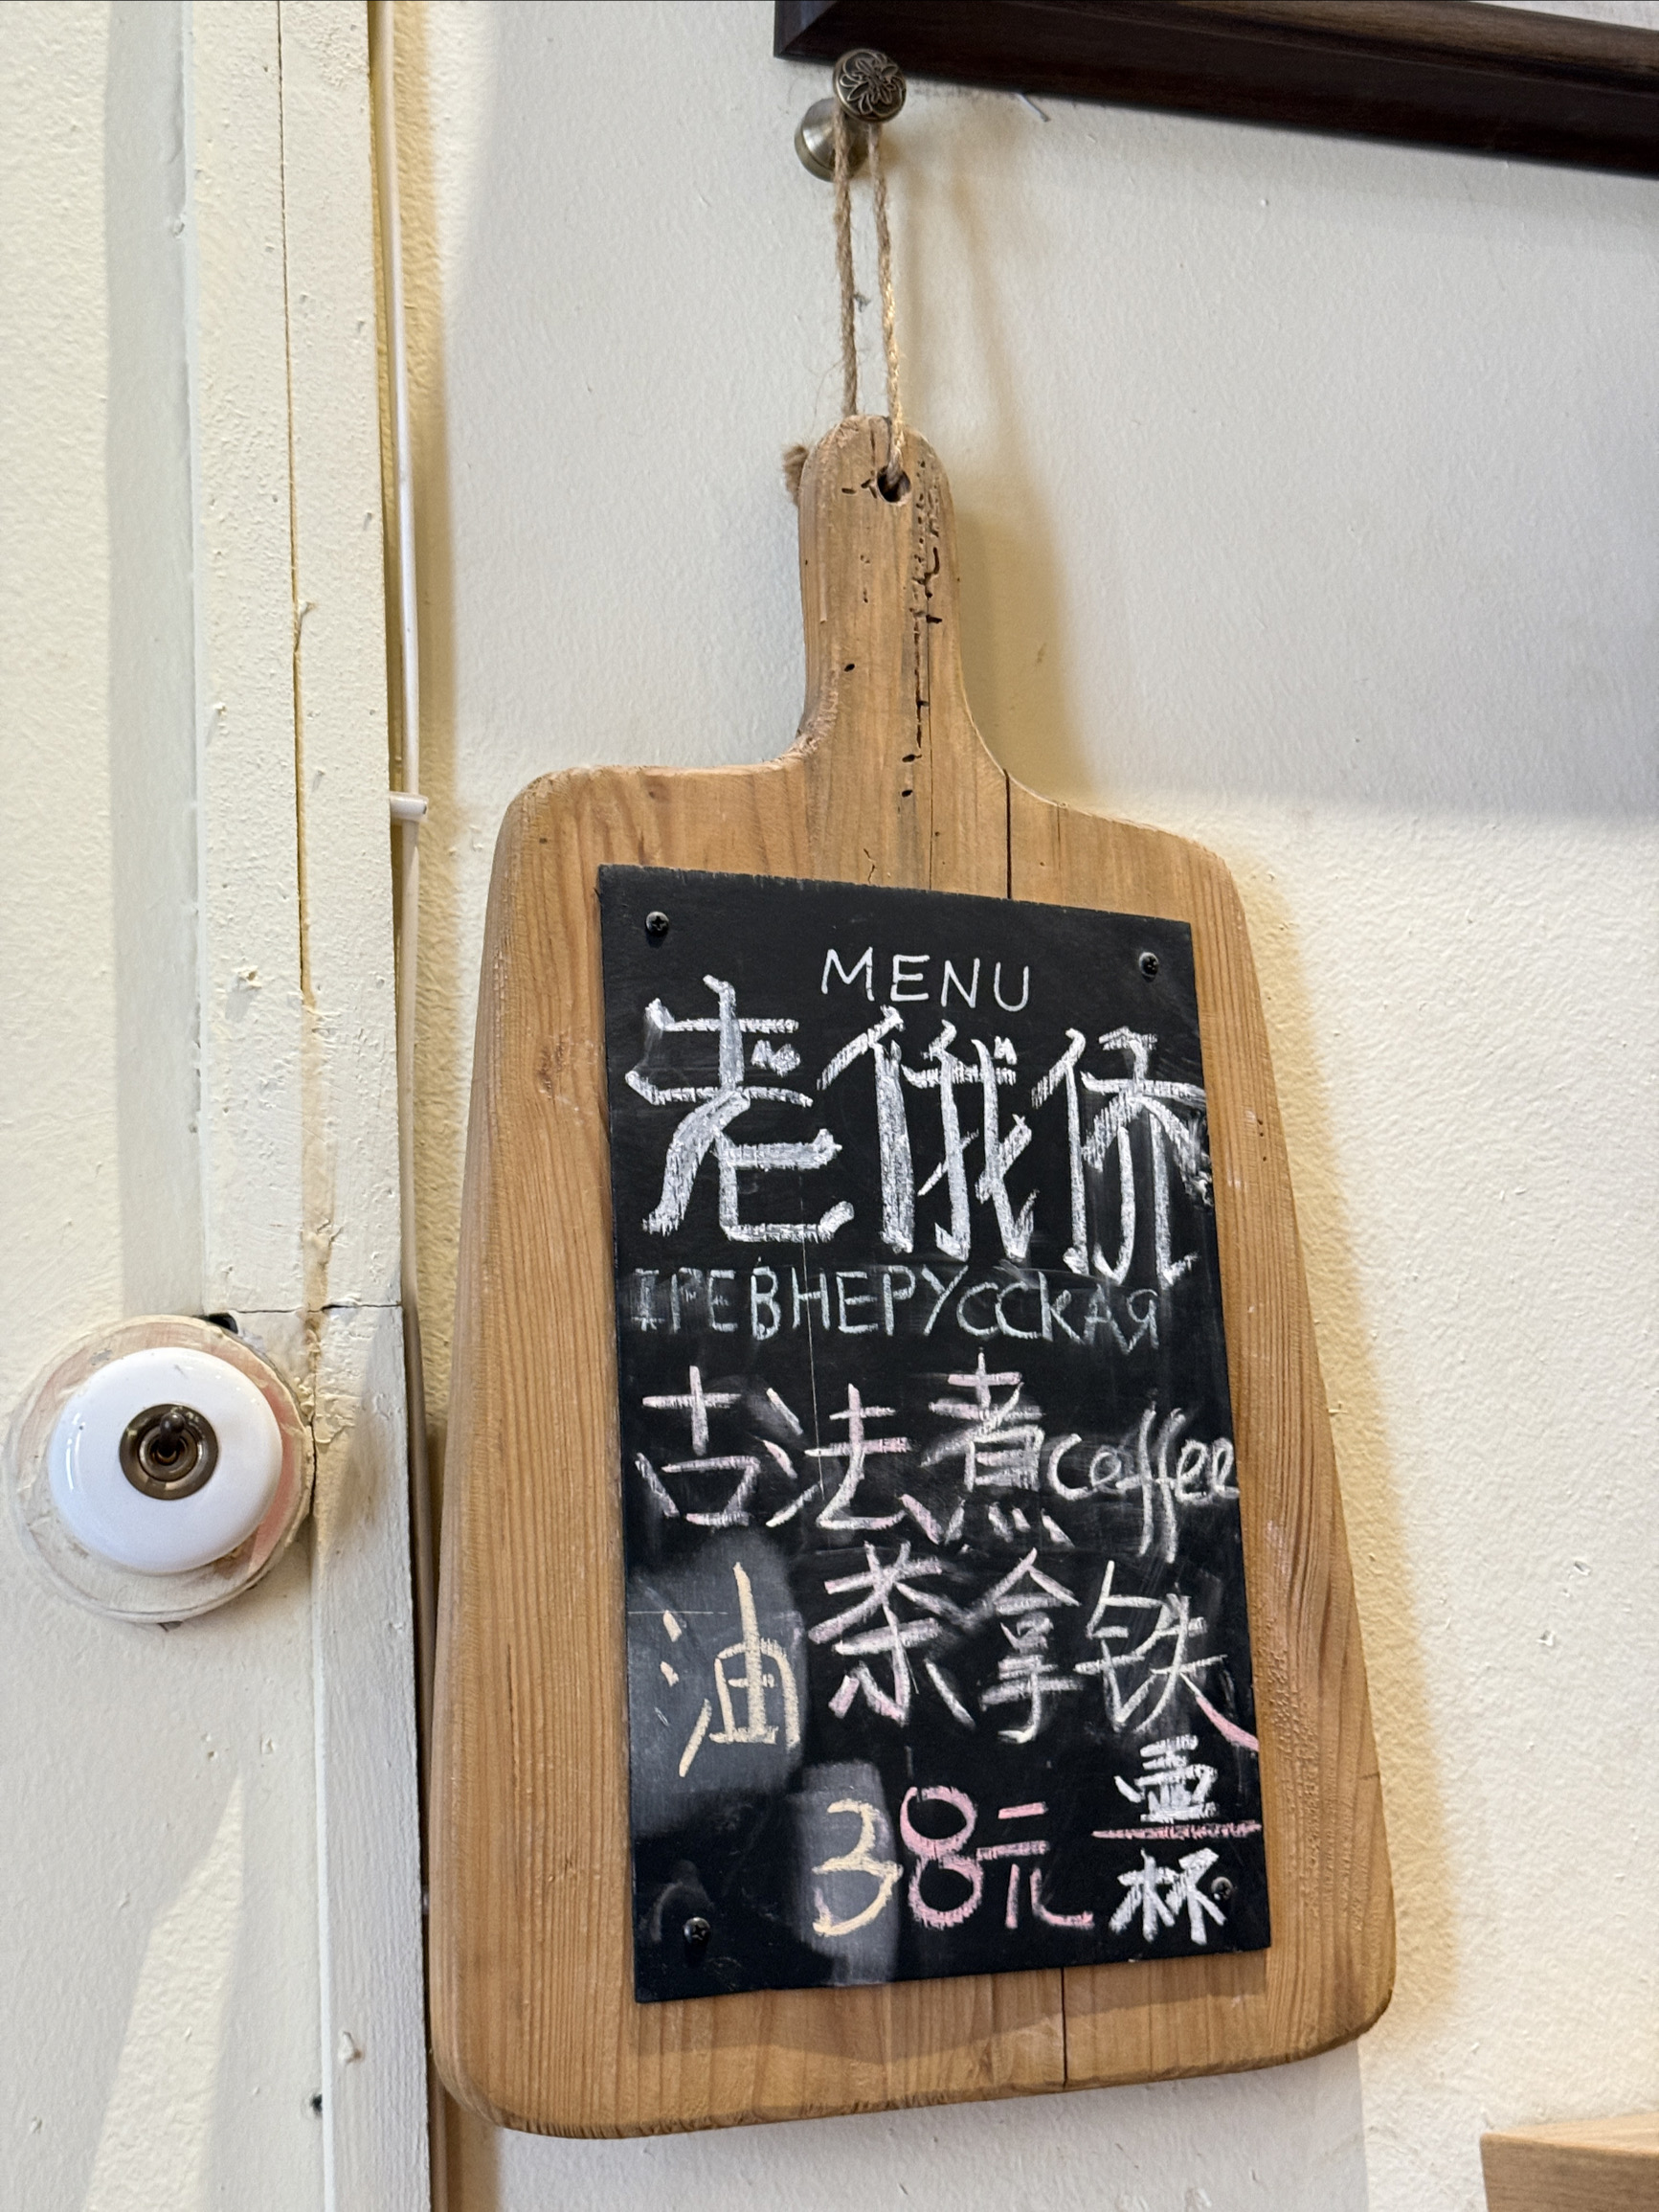 MENU
老俄侭
ДРЕВНЕРУССКАЯ
古法煮coffee
油茶拿铁
38元 壶
杯